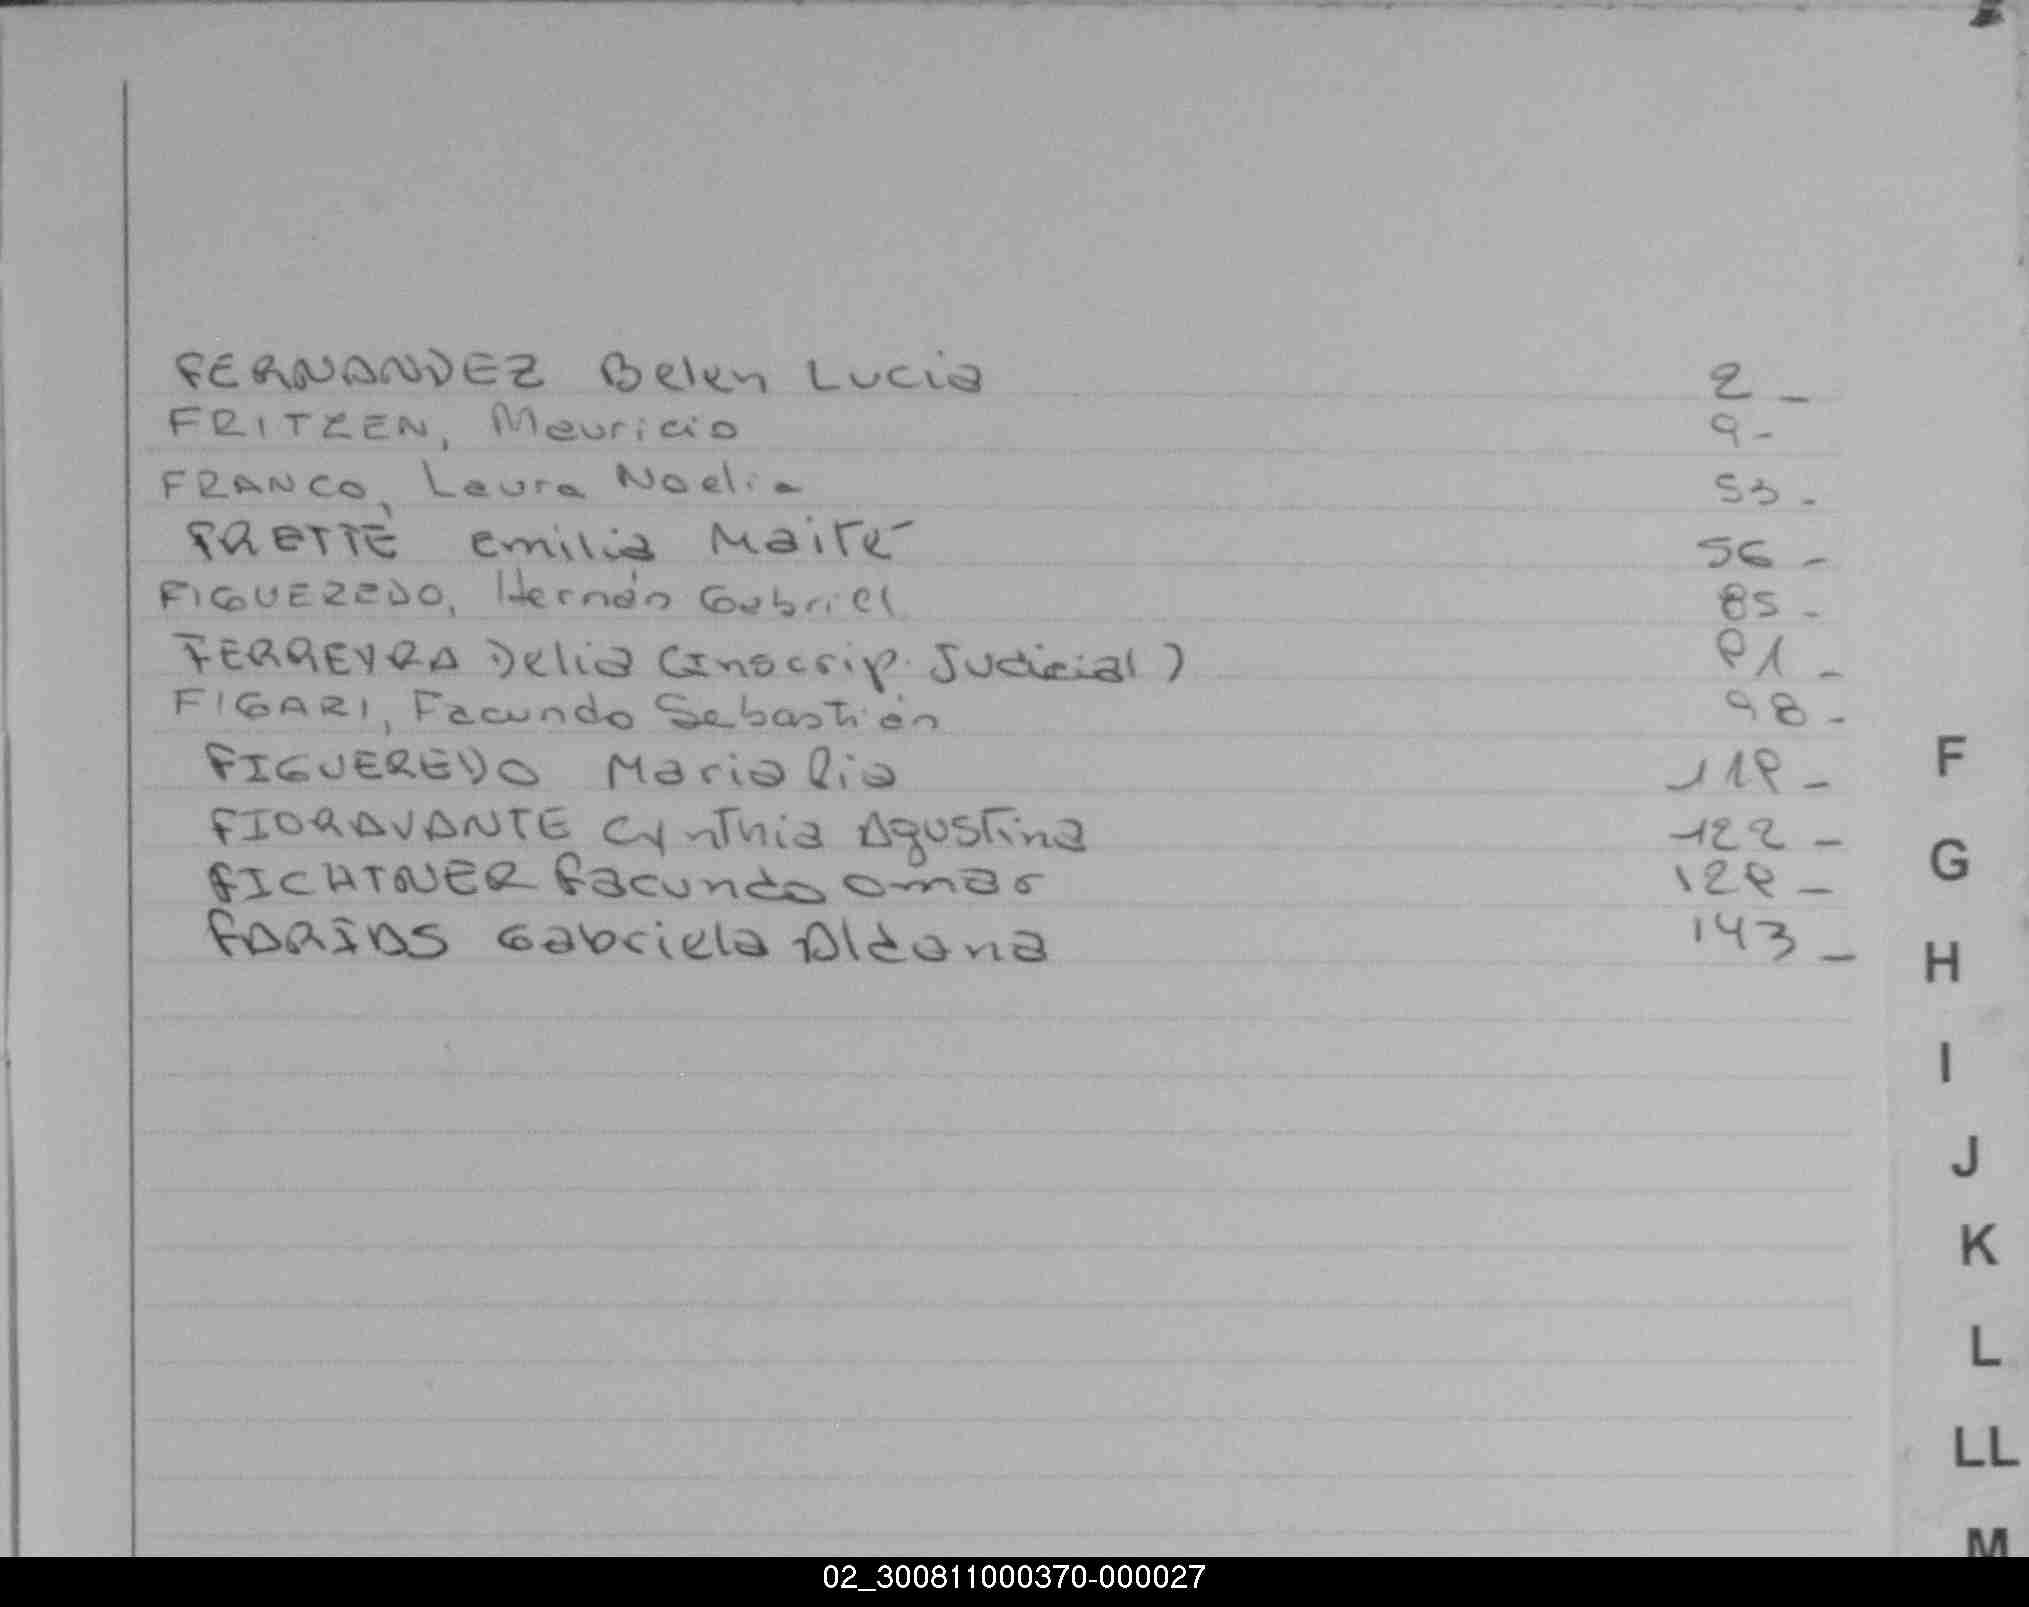 FERNANDEZ Belen Lucia 2 -
FRITZEN, Mauricio 9 -
FRANCO, Laura Noelia 53 -
FRETTE Emilia Maité 56 -
FIGUEREDO, Hernán Gabriel 85 -
FERREYRA Delia (Inscrip. Judicial) 91 -
FIGARI, Facundo Sebastián 98 -
FIGUEREDO Maria Pia 119 -
FIORAVANTE Cynthia Agustina 122 -
FICHTNER Facundo Omar 129 -
FARÍAS Gabriela Aldana 143 -
F
G
H
I
J
K
L
LL
M
02_300811000370-000027